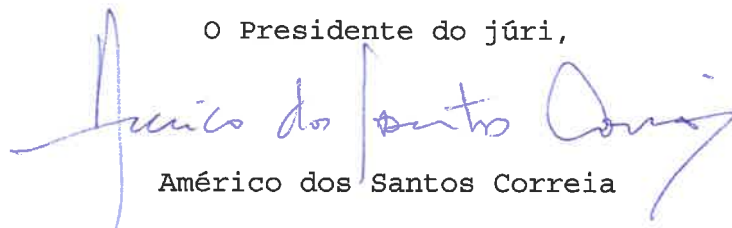 O Presidente do júri,
Américo dos Santos Correia
Américo dos Santos Correia